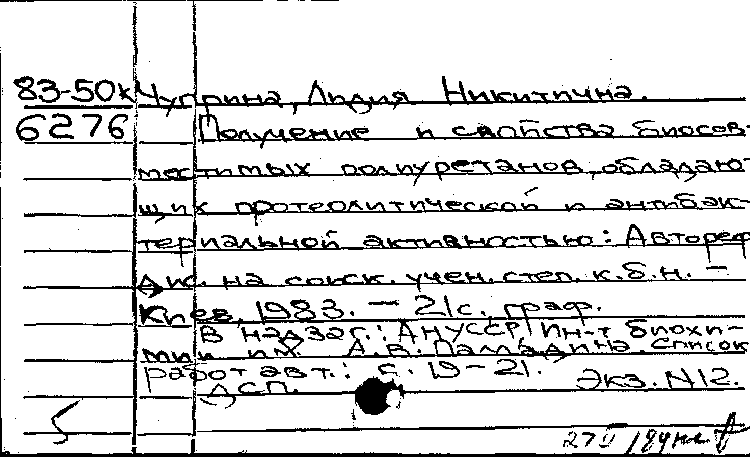 83-50к Чуприна, Лидия Никитична.
6276 Получение и свойства биосов-
местимых полиуретанов, обладаю-
щих протеолитической и антибак-
териальной активностью: Автореф.
дис. на соиск. учен. степ. к.б.н. –
Киев, 1983. – 21 с., граф.
В надзаг.: АН УССР, Ин-т биохи-
мии им. А.В. Палладина. Список
работ авт.: с. 19–21.
ДСП. Экз. N12.